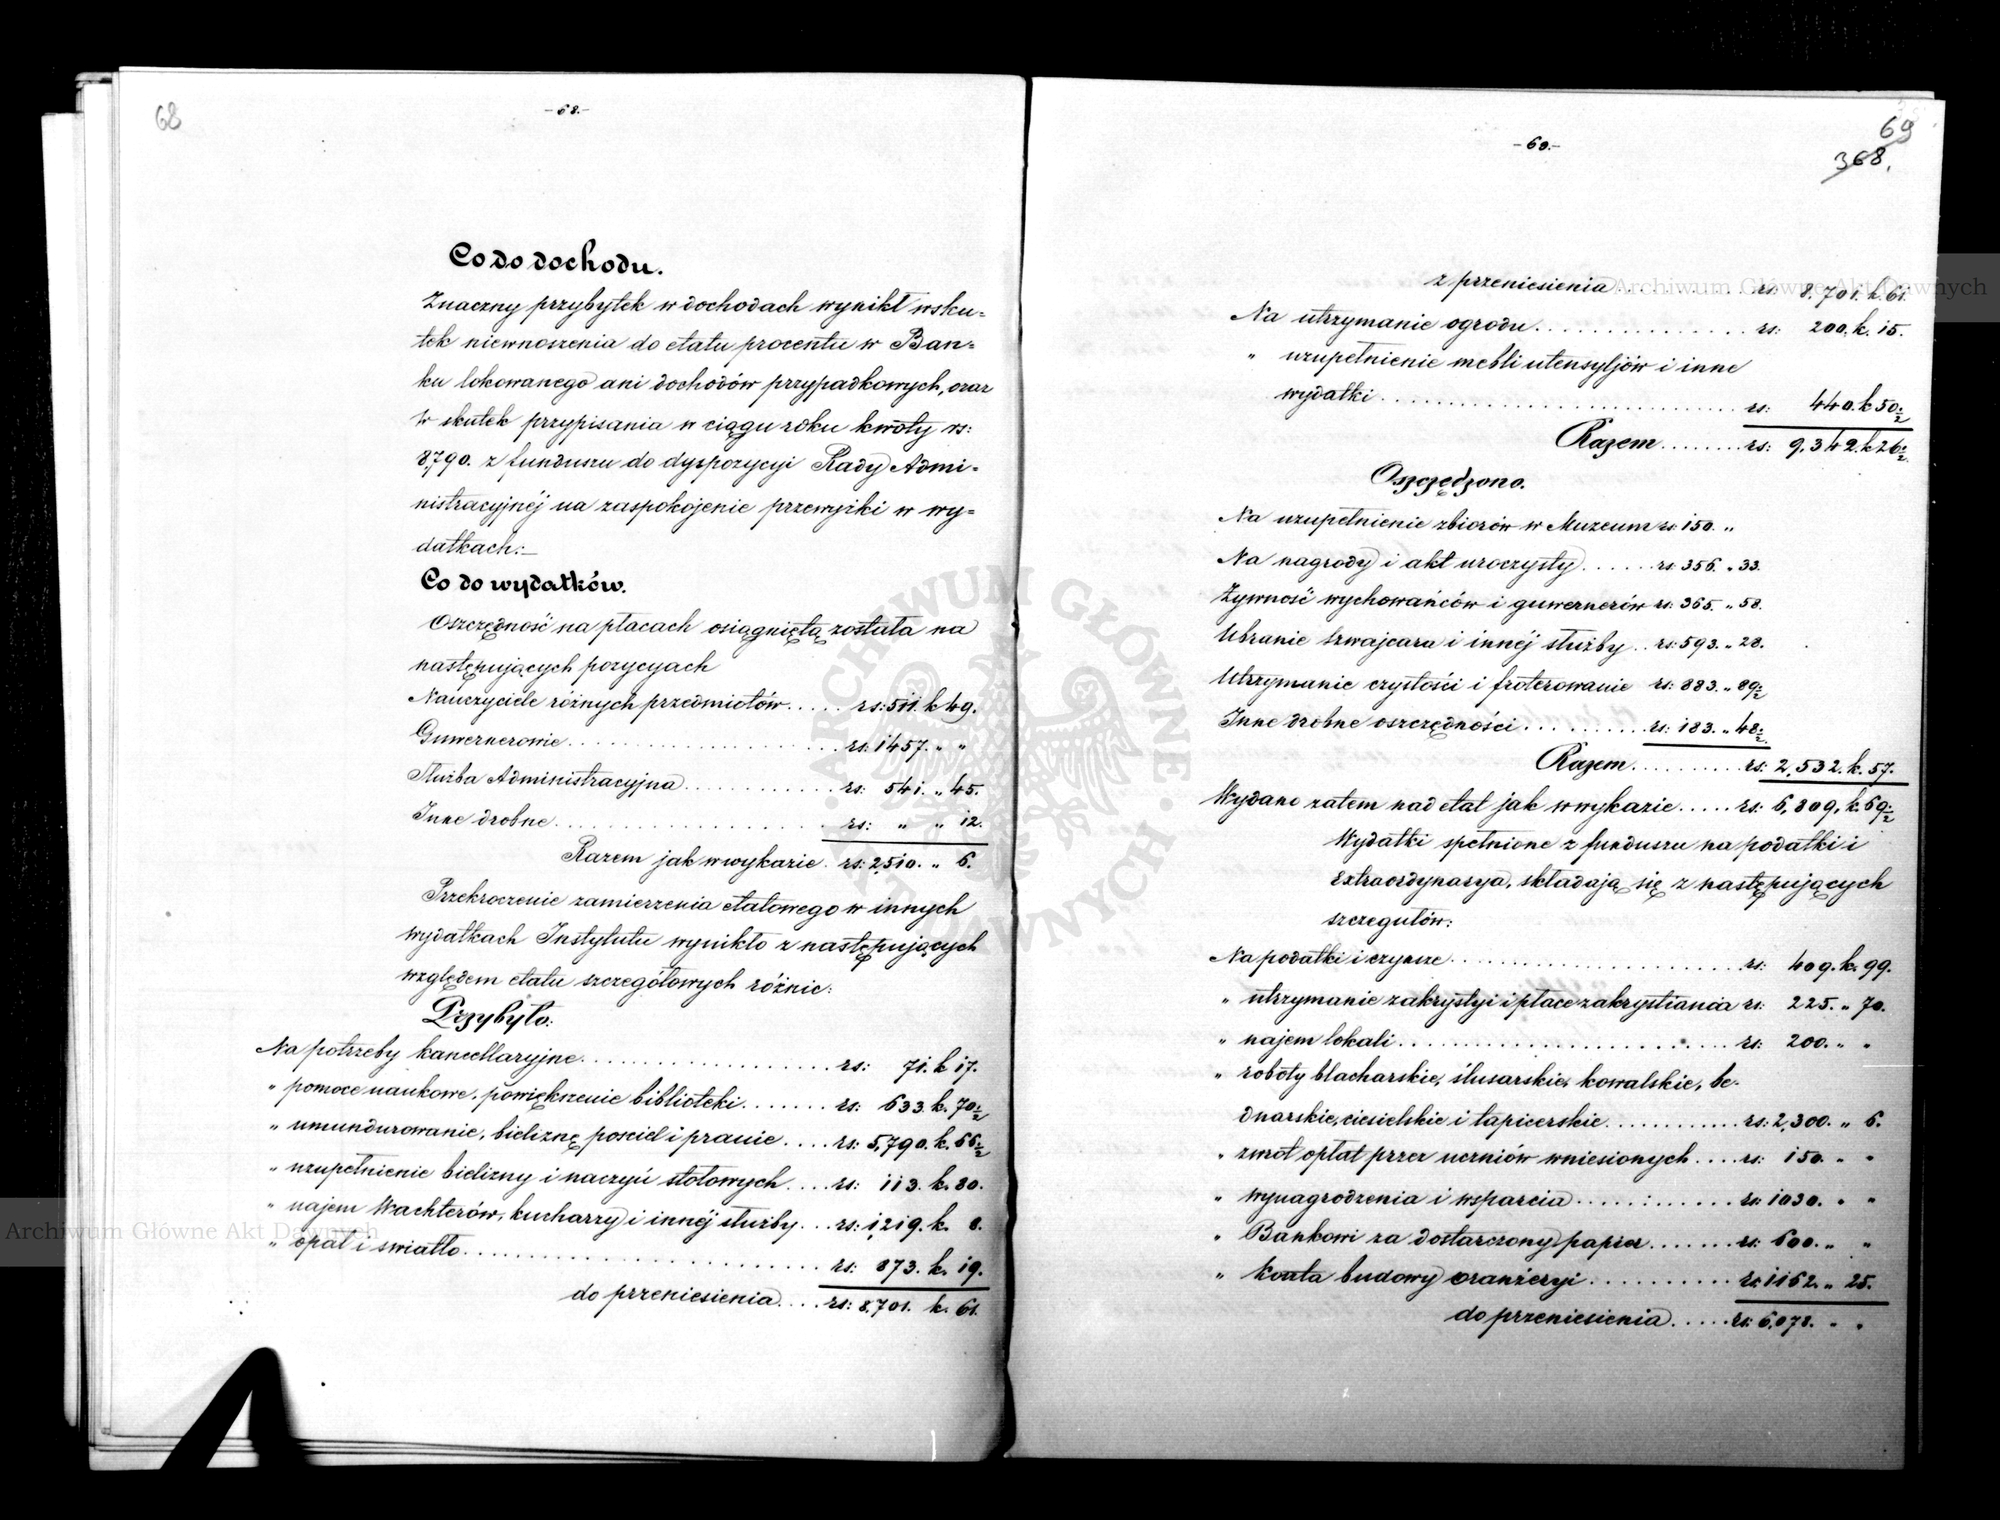 68
-68.-
Co do dochodu.
Znaczny przybytek w dochodach wynikł wsku=
tek niewnoszenia do etatu procentu w Ban=
ku lokowanego ani dochodów przypadkowych, oraz
w skutek przypisania w ciągu roku kwoty rs:
8,790. z funduszu do dyspozycyi Rady Admi=
nistracyjnéj na zaspokojenie przewyżki w wy=
datkach:—
Co do wydatków.
Oszczędność na płacach osiągniętą została na
następujących pozycyach
Nauczyciele różnych przedmiotów..... rs: 511. k 49.
Guwernerowie.................... rs: 1457. " "
Służba Administracyjna............ rs: 541. " 45.
Inne drobne.................... rs: " " 12.
Razem jak w wykazie. rs: 2,510. " 6.
Przekroczenie zamierzenia etatowego w innych
wydatkach Instytutu wynikło z następujących
względem etatu szczegółowych różnic:
Przybyło:
Na potrzeby kancellaryjne.................. rs: 71. k 17.
" pomoce naukowe, powiększenie biblioteki....... rs: 633. k. 70½
" umundurowanie, bieliznę pościel i pranie.... rs: 5,790. k. 66½
" uzupełnienie bielizny i naczyń stołowych.... rs: 113. k. 80.
" najem Wachterów, kucharzy i innéj służby... rs: 1,219. k. 8.
" opał i swiatło........................ rs: 873. k. 19.
do przeniesienia.... rs: 8,701. k. 61.
-69.-
69
368.
z przeniesienia............ rs: 8,701. k. 61.
Na utrzymanie ogrodu................ rs: 200. k. 15.
" uzupełnienie mebli utensyljów i inne
wydatki........................ rs: 440. k 50½
Razem........ rs: 9,342. k 26½
Oszczędzono.
Na uzupełnienie zbiorów w Muzeum rs: 150. "
Na nagrody i akt uroczysty...... rs: 356. " 33.
Żywność wychowańców i guwernerów rs: 365. " 58.
Ubranie szwajcara i innéj służby.. rs: 593. " 28.
Utrzymanie czystości i froterowanie rs: 883. " 89½
Inne drobne oszczędności......... rs: 183. " 48½
Razem.......... rs: 2,532. k. 57.
Wydano zatem nad etat jak w wykazie..... rs: 6,809. k. 69½
Wydatki spełnione z funduszu na podatki i
extraordynarya, składają się z następujących
szczegułów:
Na podatki i czynsze..................... rs: 409. k. 99.
" utrzymanie zakrystyi i płace zakrystiana rs: 225. " 70.
" najem lokali........................ rs: 200. " "
" roboty blacharskie, ślusarskie, kowalskie, be-
dnarskie, ciesielskie i tapicerskie............ rs: 2,300. " 6.
" zwrot opłat przez uczniów wniesionych.... rs: 150. " "
" wynagrodzenia i wsparcia.....:...... rs: 1030. " "
" Bankowi za dostarczony papier....... rs: 600. " "
" koszta budowy oranżeryi............ rs: 1162. " 25.
do przeniesienia..... rs: 6,078. " "
Archiwum Główne Akt Dawnych
Archiwum Główne Akt Dawnych
ARCHIWUM GŁÓWNE AKT DAWNYCH